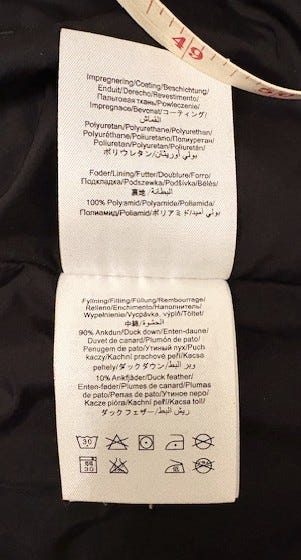 49
Impregnering/Coating/Beschichtung/
Enduit/Derecho/Revestimento/
Пальтовая ткань/Powleczenie/
Impregnace/Bevonat/コーティング/
القماش
Polyuretan/Polyurethane/Polyurethan/
Polyuréthane/Poliuretano/Полиуретан/
Poliuretan/Polyuretan/Poliuretan/
ポリウレタン/بولي أوريثان
Foder/Lining/Futter/Doublure/Forro/
Подкладка/Podszewka/Podšívka/Bélés/
裏地/البطانة
100% Polyamid/Polyamide/Poliamida/
Полиамид/Poliamid/ポリアミド/بولي أميد
Fyllning/Filling/Füllung/Rembourrage/
Relleno/Enchimento/Наполнитель/
Wypełnienie/Vycpávka, výplň/Töltet/
中綿/الحشوة
90% Ankdun/Duck down/Enten-daune/
Duvet de canard/Plumón de pato/
Penugem de pato/Утиный пух/Puch
kaczy/Kachní prachové peří/Kacsa
pehely/ダックダウン/وبر البط
10% Ankfjäder/Duck feather/
Enten-feder/Plumes de canard/Plumas
de pato/Penas de pato/Утиное перо/
Kacze pióra/Kachní peří/Kacsa toll/
ダックフェザー/ريش البط
30
30